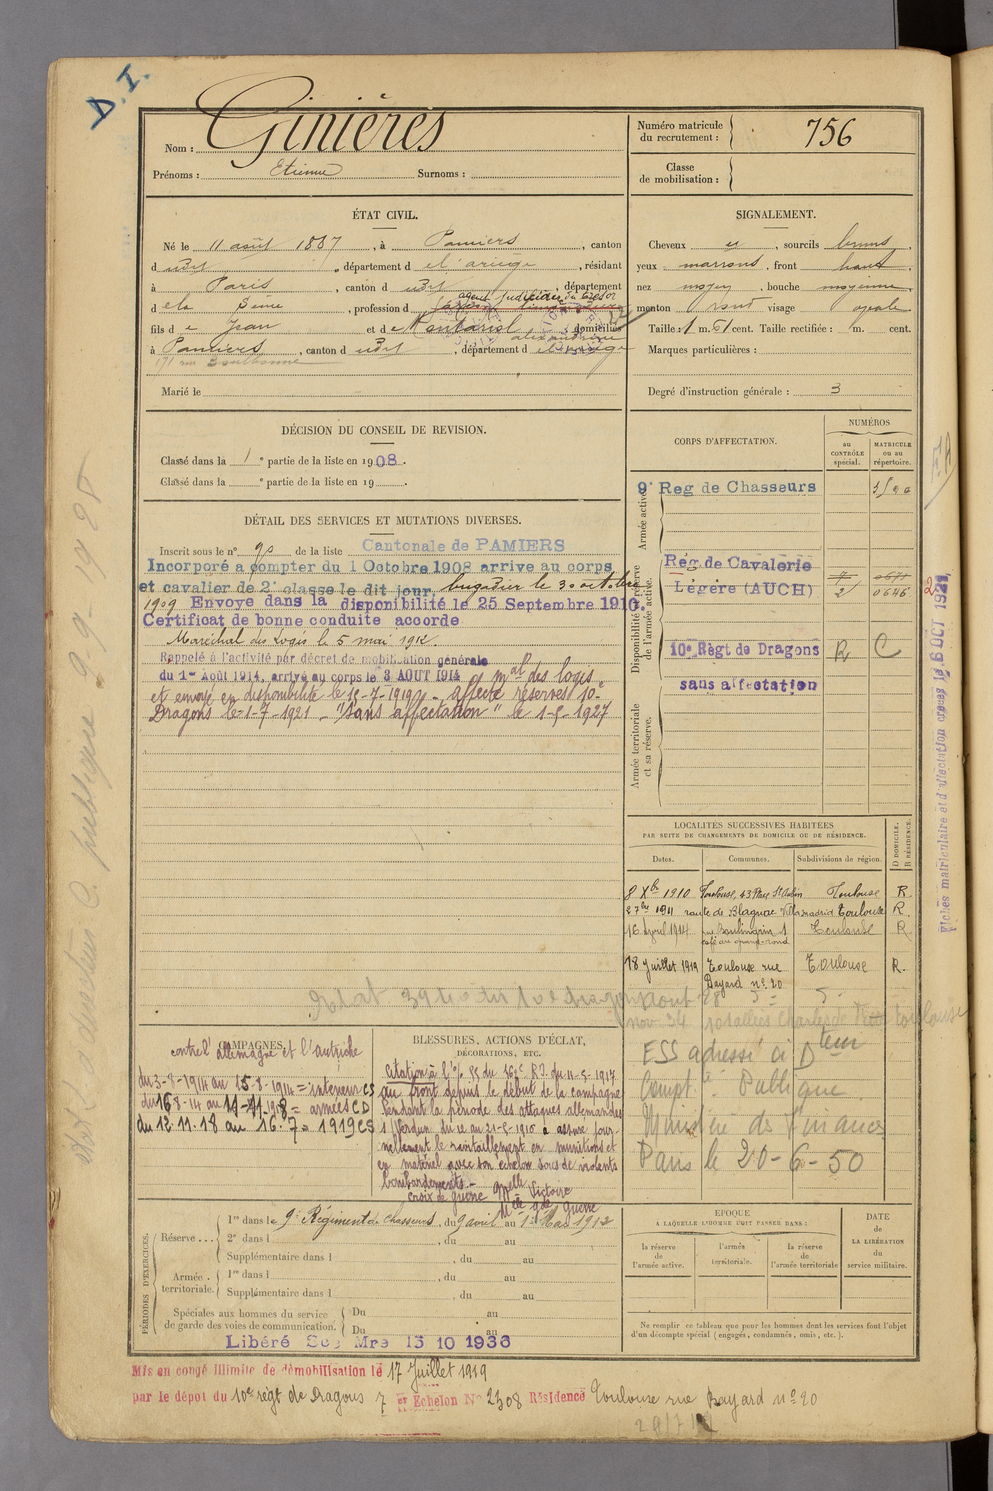 D. I.
Nom : Ginières
Prénoms : Etienne Surnoms :
Numéro matricule du recrutement : 756
Classe de mobilisation :
ÉTAT CIVIL.
Né le 11 août 1887, à Pamiers, canton
dudit, département de l'ariège, résidant
à Paris, canton dudit, département
de la Seine, profession d
agent du trésor
fils de Jean et de domiciliés
à Pamiers, canton dudit, département d
Marié le
SIGNALEMENT.
Cheveux et, sourcils bruns,
yeux marrons, front haut,
nez moyen, bouche moyenne,
menton rond visage ovale
Taille : 1 m. 61 cent. Taille rectifiée : m. cent.
Marques particulières :
Degré d'instruction générale : 3
DÉCISION DU CONSEIL DE REVISION.
Classé dans la 1e partie de la liste en 1908.
Classé dans la e partie de la liste en 19
DÉTAIL DES SERVICES ET MUTATIONS DIVERSES.
Inscrit sous le n° 90 de la liste Cantonale de PAMIERS
Incorporé a compter du 1 Octobre 1908 arrive au corps
et cavalier de 2e classe le dit jour, brigadier le 30 octobre
1909 Envoye dans la disponibilité le 25 Septembre 1910.
Certificat de bonne conduite accorde
Maréchal des Logis le 5 mai 1912
Rappelé à l'activité par décret de mobilisation générale
du 1er Août 1914, arrivé au corps le 3 AOUT 1914 mal des logis
et envoyé en disponibilité le 18-7-1919. affecté réserves 10e
Dragons le 1-7-1921 - "Sans affectation" le 1-5-1927
CORPS D'AFFECTATION.
NUMÉROS
au CONTRÔLE spécial.
MATRICULE ou au répertoire.
Armée active.
9e Reg de Chasseurs
Disponibilité et réserve de l'armée active.
Rég. de Cavalerie
Légère (AUCH) 2 0646
10e Règt de Dragons R C
Armée territoriale et sa réserve.
sans affectation
LOCALITÉS SUCCESSIVES HABITÉES
PAR SUITE DE CHANGEMENTS DE DOMICILE OU DE RÉSIDENCE.
Dates. Communes. Subdivisions de région. D DOMICILE. R RÉSIDENCE.
8 Xbre 1910 Toulouse, 43 Place St Aubin Toulouse R.
27 1911 route de Blagnac Villa madrid Toulouse R.
16 Avril 1914 rue Boulingrin 1 Toulouse R.
café du grand-rond
18 Juillet 1919 Toulouse rue Bayard n° 20 Toulouse R.
nov. 34
ESS adressé à Dteur
Compté Publique
Ministère des Finances
Paris le 20-6-50
CAMPAGNES.
contre l'allemagne et l'autriche
du 3-8-1914 au 15-8-1914 = intérieur CS
du 16-8-14 au 11-11-1918 = armées CD
du 12.11.18 au 16.7 = 1919 CS
BLESSURES, ACTIONS D'ÉCLAT,
DÉCORATIONS, ETC.
Citation à l'O. 95 du R.I. du 11-5-1917.
au front depuis le début de la campagne
Pendant la période des attaques allemandes
Verdun du 12 au 21-5-1916 a assuré jour-
nellement le ravitaillement en munitions et
en matériel avec son échelon sous de violents
bombardements.-
croix de guerre Mlle Victoire
Mlle gde guerre
PÉRIODES D'EXERCICES.
Réserve... 1re dans le 9e Régiment de chasseurs, du 9 avril au 1er Mai 1912
2e dans l , du au
Supplémentaire dans l , du au
Armée territoriale. 1re dans l , du au
Supplémentaire dans l , du au
Spéciales aux hommes du service de garde des voies de communication. Du au
Du au
Libéré Sce Mre 15 10 1936
EPOQUE
À LAQUELLE L'HOMME DOIT PASSER DANS :
la réserve de l'armée active.
l'armée territoriale.
la réserve de l'armée territoriale
DATE DE LA LIBÉRATION du service militaire.
Ne remplir ce tableau que pour les hommes dont les services font l'objet
d'un décompte spécial (engagés, condamnés, omis, etc.).
Mis en congé illimité de démobilisation le 17 Juillet 1919
par le dépot du 10e régt de Dragons 7 er Echelon N° 2308 Résidence Toulouse rue Bayard n° 20